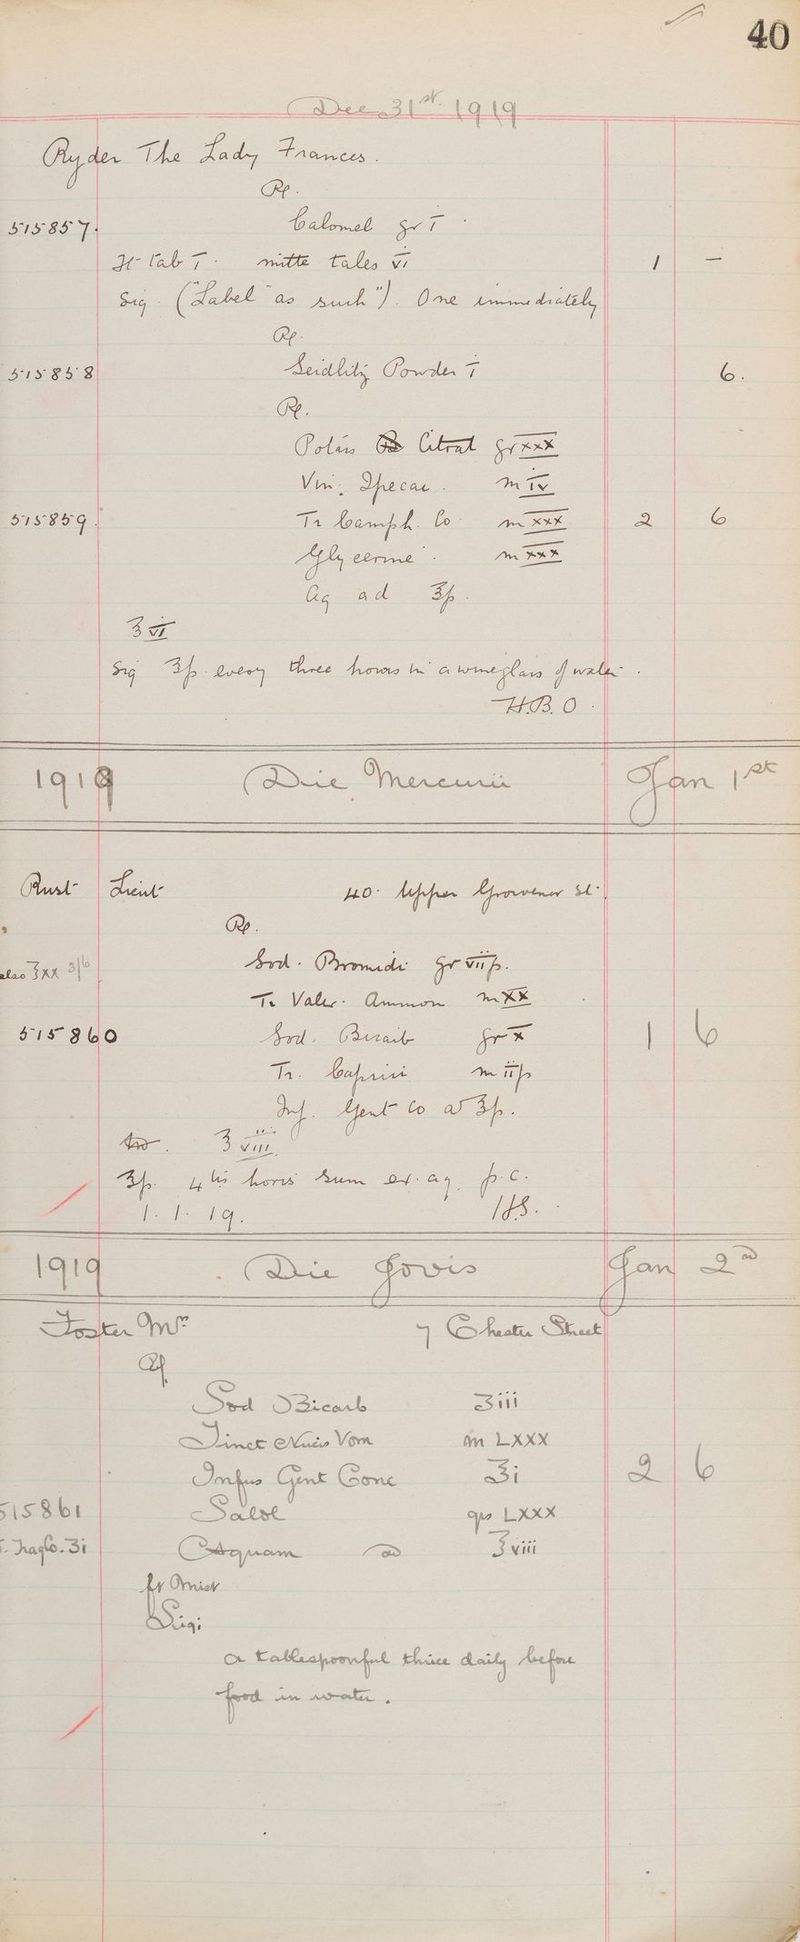 40
Dec 31st 1919
Ryder The Lady Frances.
Rp.
515857. Calomel gr i
Ft tab i. mitte tales vi 1 —
Sig. ("Label "as such"). One immediately
Rp.
515858 Seidlitz Powder i 6.
Rp.
Potass Citrat gr xxx
Vin. Ipecac. m iv
515859. Tr Camph. Co. m xxx 2 6
Glycerine. m xxx
Aq ad ℥ß.
℥ vi
Sig ℥ß. every three hours in a wineglass of water.
H.B.O.
1919 Die Mercurii Jan 1st
Rust Lieut 40. Upper Grosvenor St.
Rp.
Sod. Bromidi gr viiß.
also ℥xx 3/6
Tr Valer. Ammon m xx
515860 Sod. Bicarb gr x 1 6
Tr. Capsici m iiß
Inf. Gent Co ad ℥ß.
℥ viii
℥ß. 4tis horis sum ex. aq. p.c.
1. 1. 19. HS.
1919 Die Jovis Jan 2nd
Foster Mrs 7 Chester Street
Rp
Sod Bicarb ʒiii
Tinct Nucis Vom m LXXX
Infus Gent Conc ℥i 2 6
515861 Salol grs LXXX
T. Trag Co. ʒi Aquam ad ℥viii
ft Mist
Sig:
a tablespoonful thrice daily before
food in water.